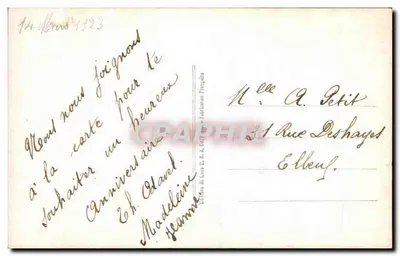 14 Mars 1923
Nous nous joignons
à la carte pour te
souhaiter un heureux
Anniversaire
Th. Olavel.
Madeleine
Jeanne
Fabrication Française
Mlle A. Petit
31 Rue Deshayes
Elbeuf.